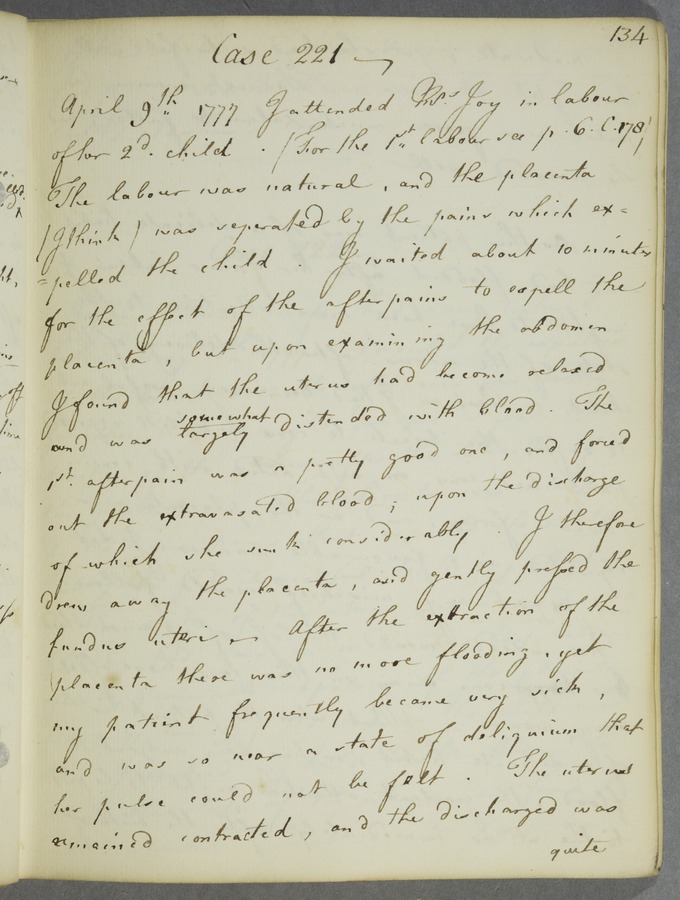 134
Case 221
April 9th 1777 I attended Mrs Joy in labour
of her 2d. child . (For the 1st labour see p. 6. C. 178)
The labour was natural , and the placenta
(I think) was seperated by the pains which ex=
=pelled the child . I waited about 10 minutes
for the effect of the afterpains to expell the
placenta , but upon examining the abdomen
I found that the uterus had become relaxed
and was somewhat largely distended with blood . The
1st. afterpain was a pretty good one , and forced
out the extravasated blood ; upon the discharge
of which she sunk considerably . I therefore
drew away the placenta , and gently pressed the
fundus uteri — After the extraction of the
placenta there was no more flooding , yet
my patient frequently became very sick ,
and was so near a state of deliquium that
her pulse could not be felt . The uterus
remained contracted , and the discharged was
quite